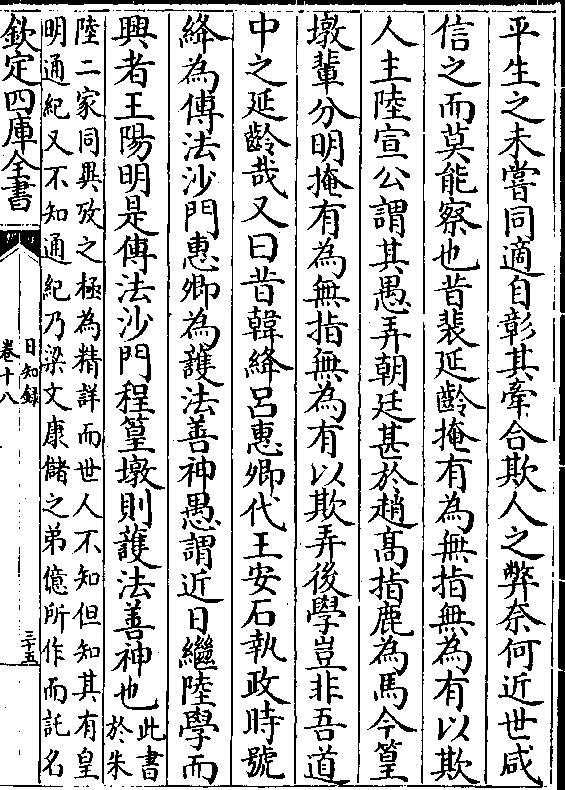 平生之未嘗同適自彰其牽合欺人之弊奈何近世咸
信之而莫能察也昔裴延齡掩有為無指無為有以欺
人主陸宣公謂其愚弄朝廷甚於趙髙指鹿為馬今篁
墩輩分明掩有為無指無為有以欺弄後學豈非吾道
中之延齡哉又曰昔韓絳呂惠卿代王安石執政時號
絳為傳法沙門惠卿為護法善神愚謂近日繼陸學而
興者王陽明是傳法沙門程篁墩則護法善神也此書於朱
陸二家同異攷之極為精詳而世人不知但知其有皇
明通紀又不知通紀乃梁文康儲之弟億所作而託名
欽定四庫全書
日知錄
卷十八
三十五